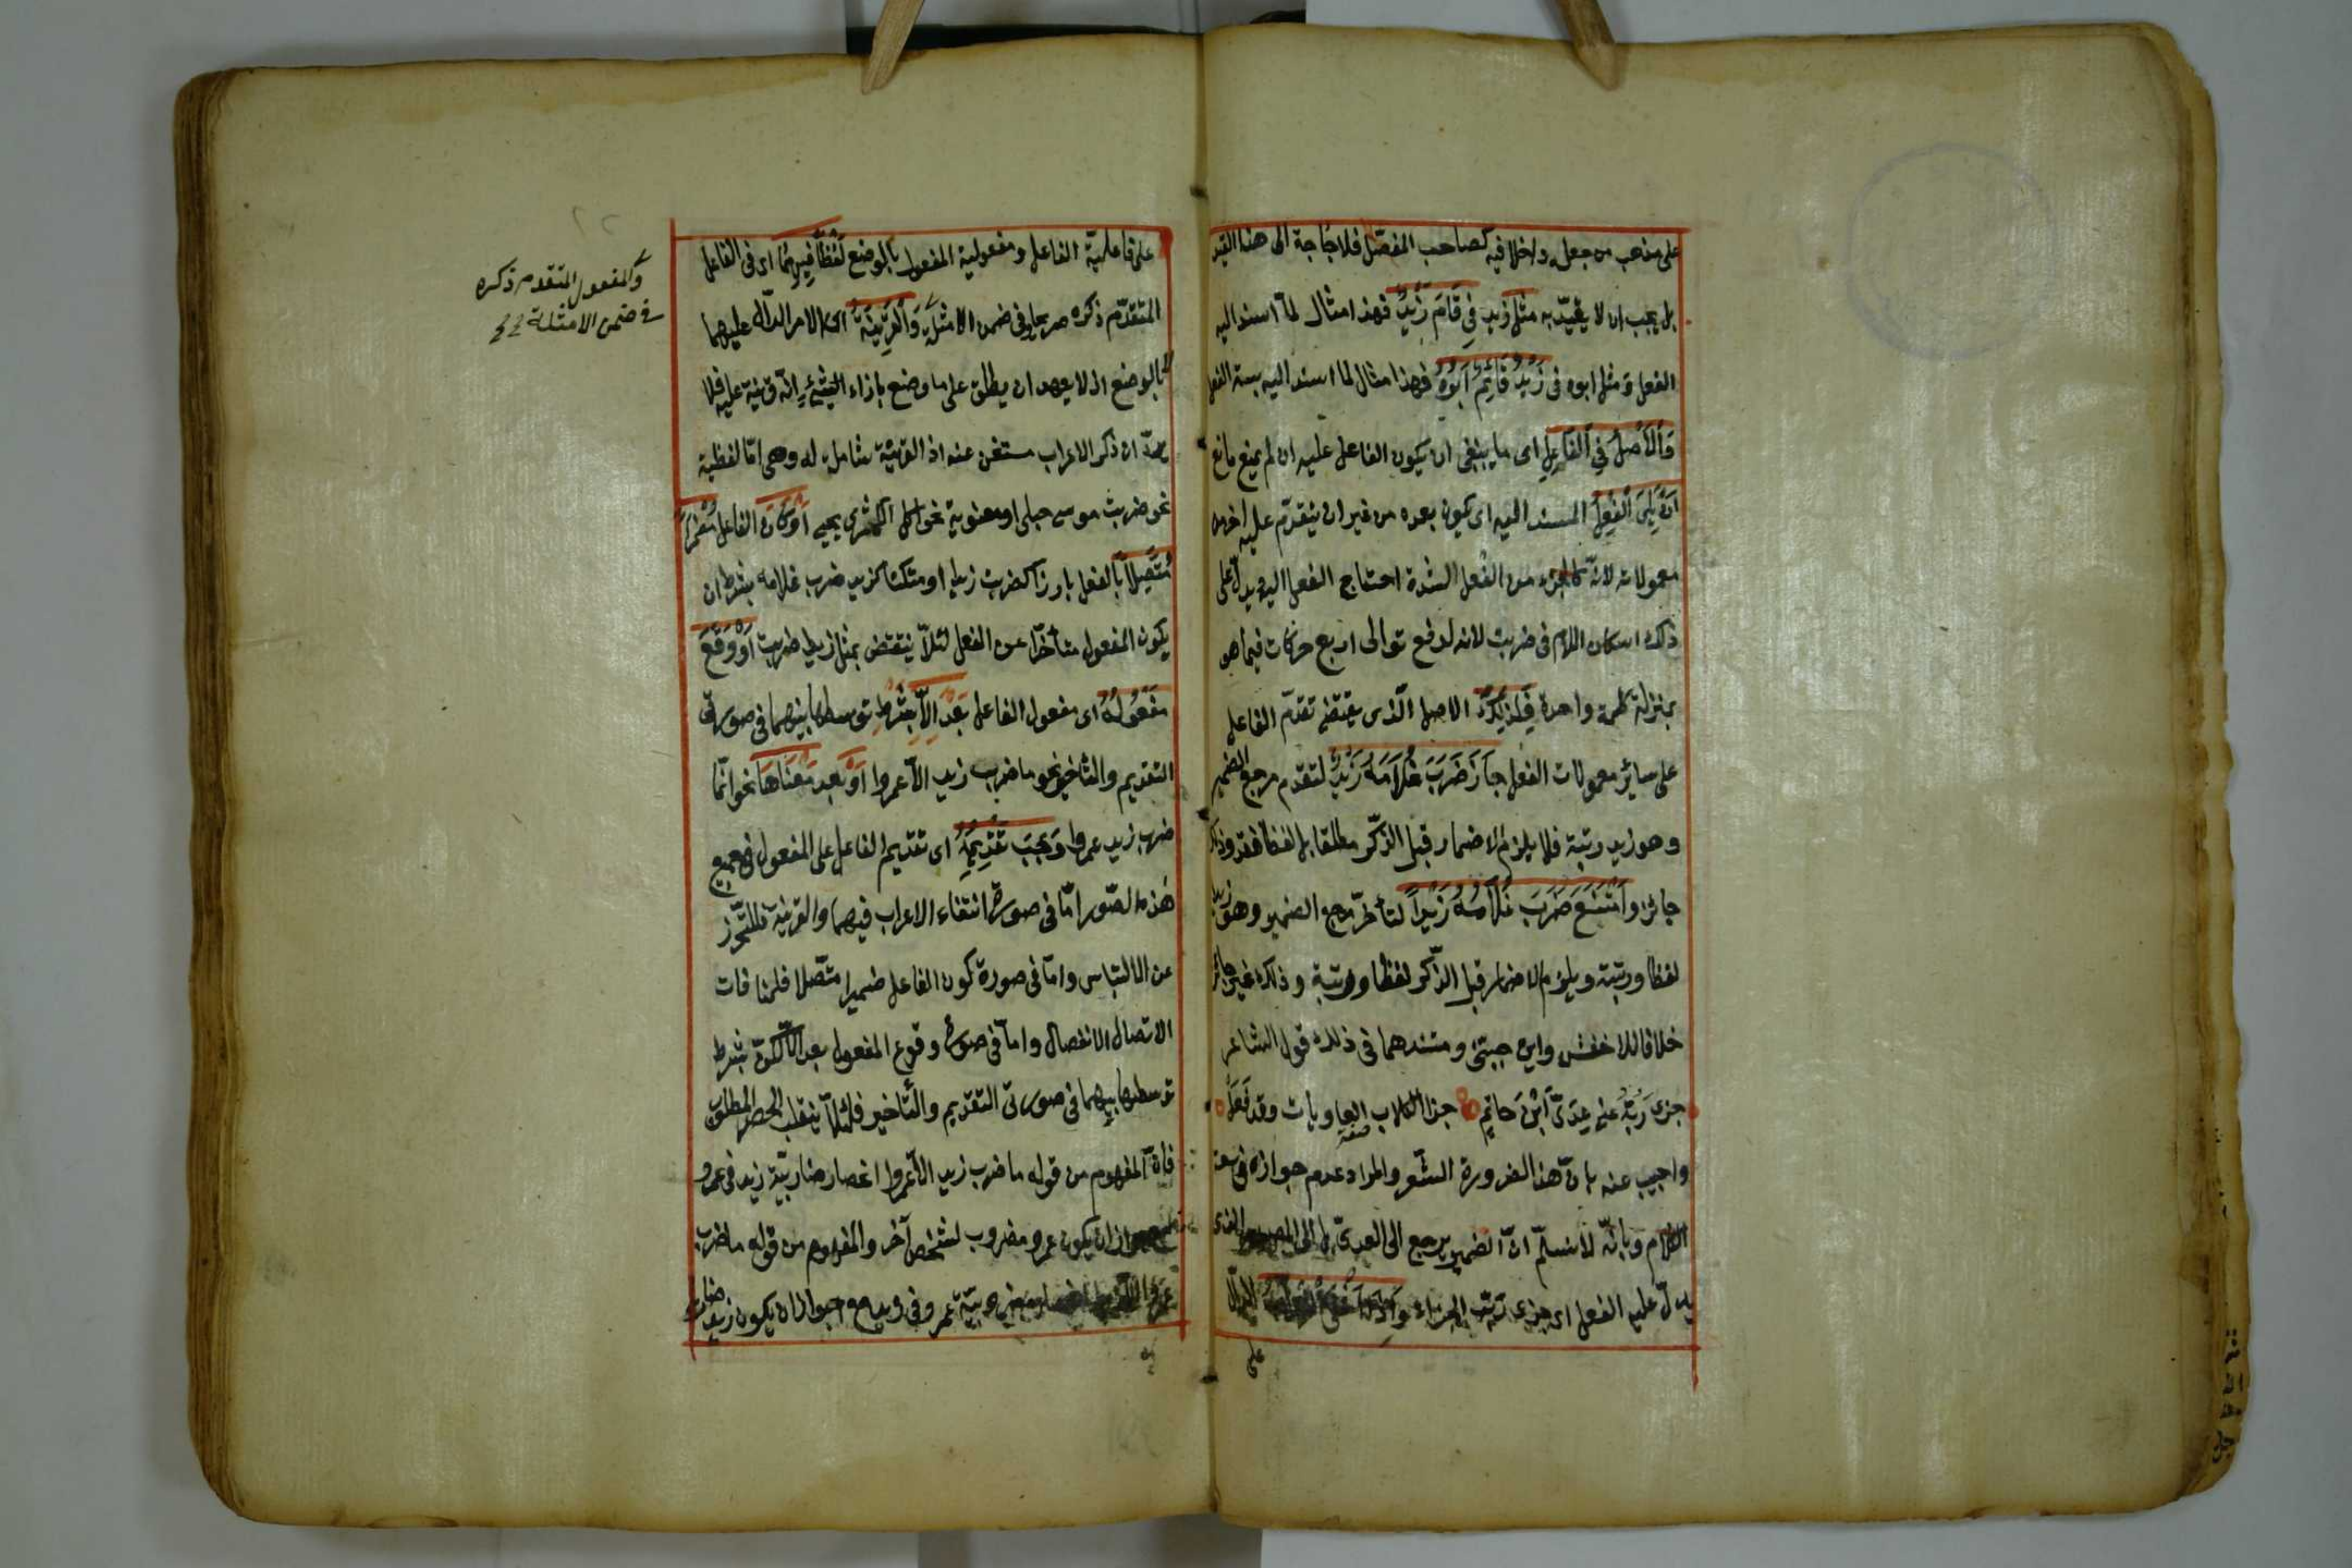 على مذهب من جعله داخلا فيه كصاحب المفصّل فلا حاجة الى هذا القيد
بل يجب ان لا يقيّد به مثل زيد فِي قَامَ زَيْدٌ فهذا مثال لما اسند اليه
الفعل ومثل ابوه فى زَيْدٌ قَائِمٌ اَبُوْهُ فهذا مثال لما اسند اليه شبه الفعل
وَاَلْاَصْلُ فِي اَلْفَاعِلِ اى ما ينبغى ان يكون الفاعل عليه ان لم يمنع مانع
اَنْ يَلِىَ اَلْفِعْلَ المسند اليه اى يكون بعده من غير ان يتقدّم عليه اخر من
معمولاته لانّه كالجزء من الفعل لشدة احتياج الفعل اليه ويدلّ على
ذلك اسكان اللام فى ضربت لانه لدفع توالى اربع حركات فيما هو
بمنزلة كلمة واحدة فَلِذٰلِكَ الاصل الّذى يقتضى تقدّم الفاعل
على سائر معمولات الفعل جَازَ ضَرَبَ غُلَامَهُ زَيْدٌ لتقدم مرجع الضمير
وهو زيد رتبة فلا يلزم الاضمار قبل الذّكر مطلقا بل لفظا فقط وذلك
جائز وَاَمْتَنَعَ ضَرَبَ غُلَامُهُ زَيْداً لتأخّر مرجع الضمير وهو زيد
لفظا ورتبة ويلزم الاضمار قبل الذّكر لفظا ورتبة وذلك غير جائز
خلافا للاخفش وابن جنى ومستندهما فى ذلك قول الشاعر
جزى رَبُّهُ عنى عِدَىَّ اَبْنَ حَاتِمٍ جزا الكلاب العاويات وقد فَعَلْ
صفة
واجيب عنه بانّ هذا لضرورة الشّعر والمراد عدم جوازه فى سعة
الكلام وبانّه لا نسلّم انّ الضمير يرجع الى العدىّ بل الى المصدر الذى
يدلّ عليه الفعل اى جزى ربّ الجزاء وَاِذَا اَنْتَفَى
على
على فاعليّة الفاعل ومفعولية المفعول بالوضع لَفْظًا فِيهِمَا اى فى الفاعل
المتقدّم ذكره صريحا وفى ضمن الامثلة وَاَلْقَرِيْنَةُ اى الامر الدالّ عليهما
لا بالوضع اذ لا يعهد ان يطلق على ما وضع بازاء الشئ انّه قرينة عليه فلا
يردّ ان ذكر الاعراب مستغن عنه اذ القرينة شاملة له وهى امّا لفظية
نحو ضربت موسى حبلى او معنوية نحو اكل الكمثرى يحيى اَوْ كَانَ الفاعل مُضْمَراً
مُتَّصِلاً بالفعل بارزا كضربت زيدا او مستكنا كزيد ضرب غلامه بشرط ان
يكون المفعول متأخّرا عن الفعل لئلّا ينتقض بمثل زيدا ضربت اَوْ وَقَعَ
مَفْعُولُهُ اى مفعول الفاعل بَعْدَ اِلَّا بشرط توسطها بينهما فى صورتى
التقديم والتأخير نحو ما ضرب زيد الّا عمروا اَوْ بعد مَعْنَاهَا نحو انّما
ضرب زيد عمروا وَجَبَ تَقْدِيمُهُ اى تقديم الفاعل على المفعول فى جميع
هذه الصّور امّا فى صورة انتفاء الاعراب فيهما والقرينة فللتّحرّز
عن الالتباس وامّا فى صورة كون الفاعل ضميرا متّصلا فلمنافات
الاتصال الانفصال وامّا فى صورة وقوع المفعول بعد الّا لكن بشرط
توسطها بينهما فى صورتى التقديم والتأخير فلئلّا ينقلب الحصر المطلوب
فانّ المفهوم من قوله ما ضرب زيد الّا عمروا انحصار ضاربيّة زيد فى عمرو
ان يكون عمرو مضروب لشخص آخر والمفهوم من قوله ما ضرب
عمروا الّا زيد مضروبيّة عمرو فى زيد مع جواز ان يكون زيد ضاربا
والمفعول المتقدم ذكره
فى ضمن الامثلة